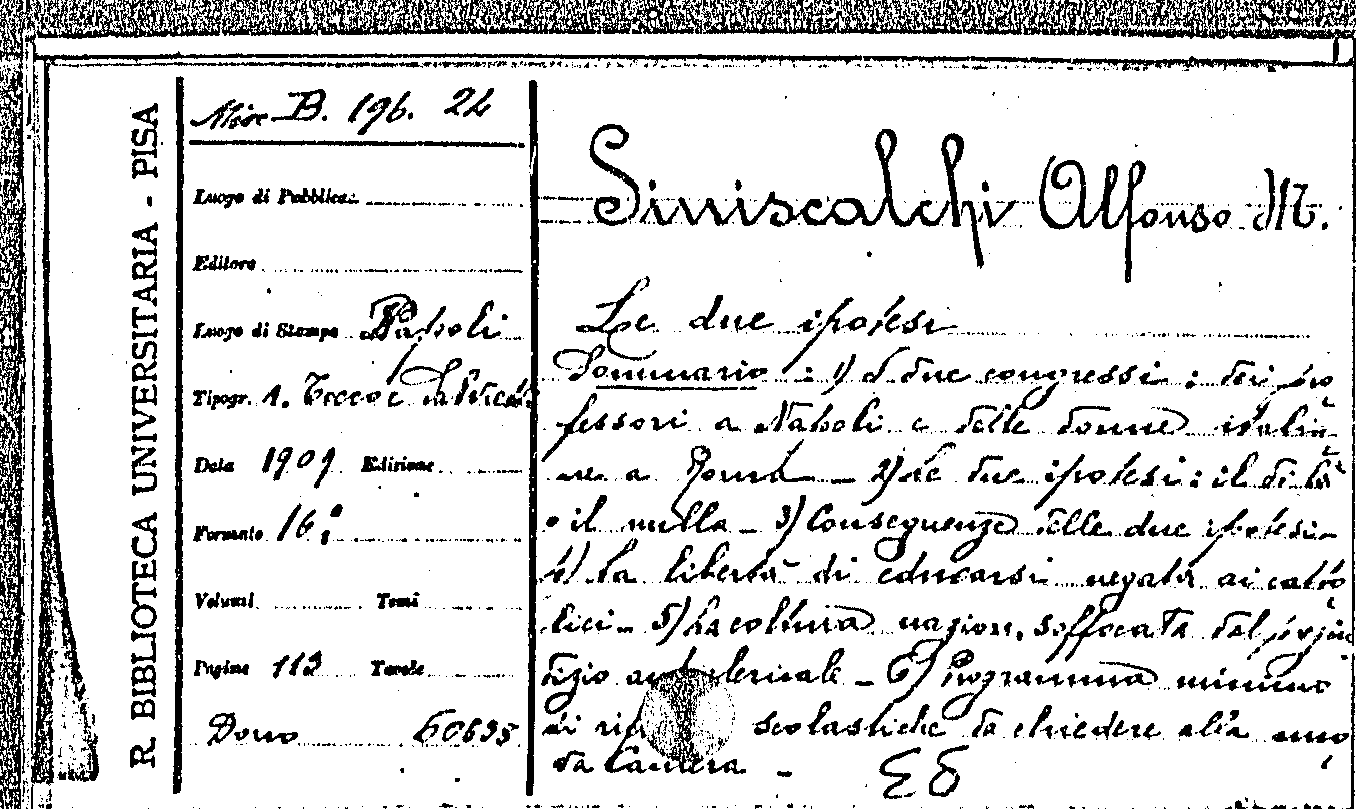 R. BIBLIOTECA UNIVERSITARIA - PISA
Misc B. 196. 24
Luogo di Pubblicaz.
Editore
Luogo di Stampa Napoli
Tipogr. A. Tocco e
Data 1909 Edizione
Formato 16º
Volumi Tomi
Pagine 113 Tavole
Dono 60695
Siniscalchi Alfonso M.
Le due ipotesi
Sommario : 1) I due congressi : dei pro
fessori a Napoli e delle donne italia
ne a Roma - 2) Le due ipotesi : il di là
o il nulla - 3) Conseguenze delle due ipotesi -
4) La libertà di educarsi negata ai catto
lici - 5) La coltura nazion. soffocata dal pregiu
dizio anticlericale - 6) Programma minimo
di scolastiche da chiedere alla nuo
va Camera -